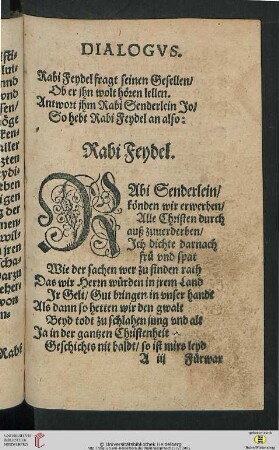 DIALOGVS.
Rabi Feydel fragt seinen Gesellen/
Ob er jhn wolt hören lellen.
Antwort jhm Rabi Senderlein Jo/
So hebt Rabi Feydel an also:
Rabi Feydel.
RAbi Senderlein/
könden wir erwerben/
Alle Christen durch
auß zuuerderben/
Ich dichte darnach
frü vnd spat
Wie der sachen wer zu finden rath
Das wir Herrn würden in jrem Land
Ir Gelt/ Gut bringen in vnser handt
Als dann so hetten wir den gwalt
Beyd todt zu schlahen jung vnd alt
Ja in der gantzen Christenheit
Geschichts nit baldt/ so ist mirs leyd
A iij Fürwar
Rabi
© Universitätsbibliothek Heidelberg